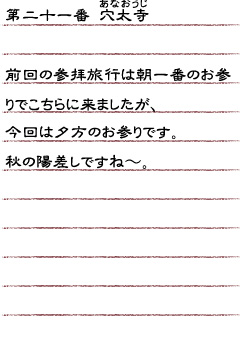 第二十一番 穴太寺
あなおうじ
前回の参拝旅行は朝一番のお参
りでこちらに来ましたが、
今回は夕方のお参りです。
秋の陽差しですね～。